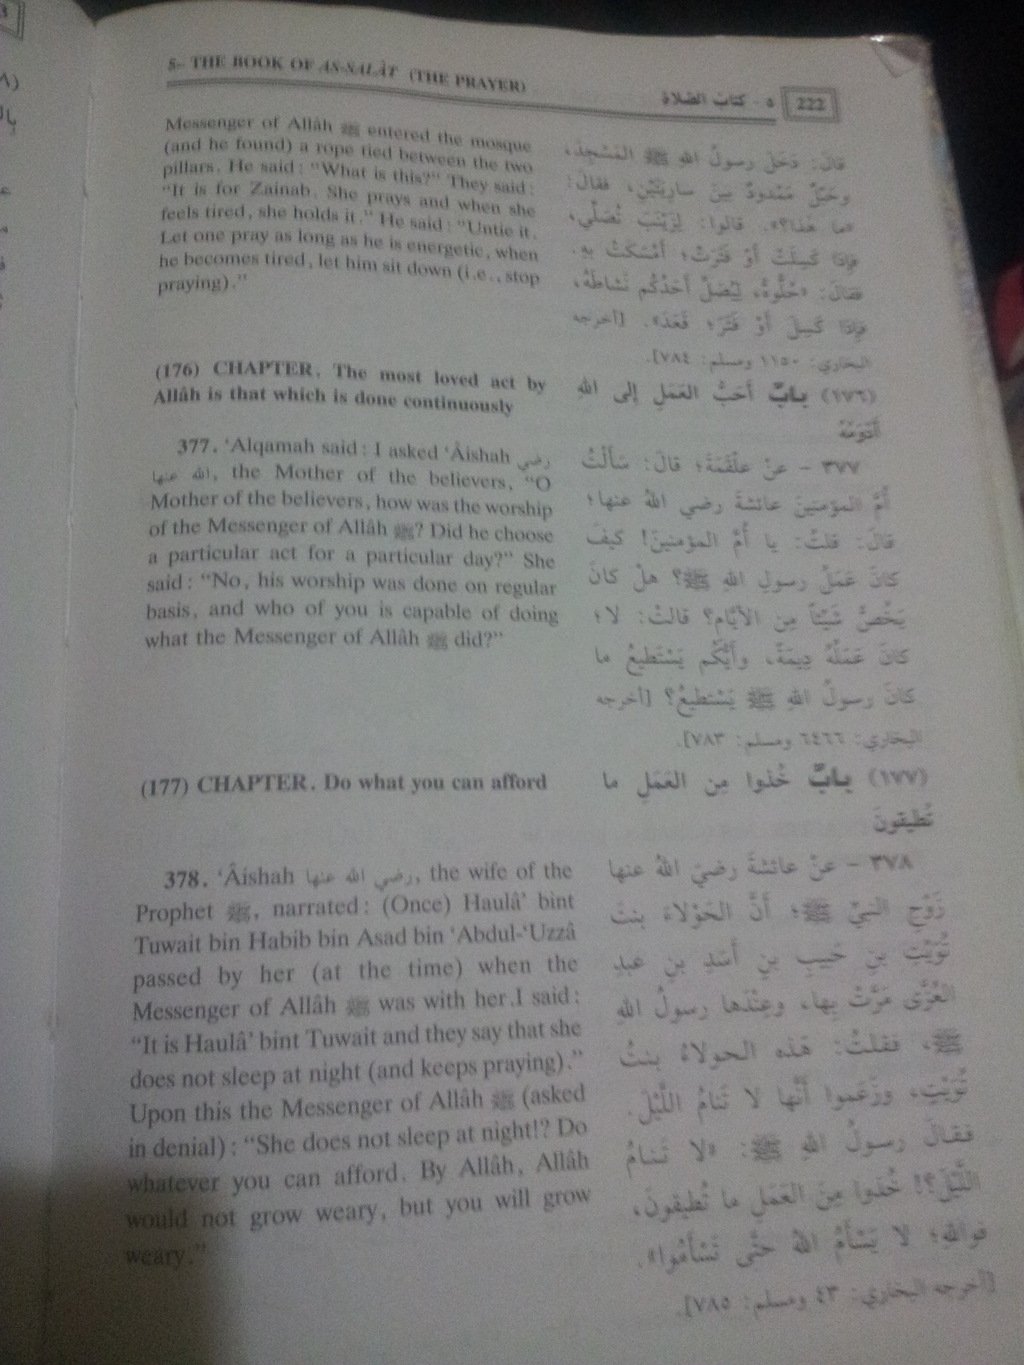 5- THE BOOK OF AS-SALÂT (THE PRAYER)
٥ - كتاب الصّلاة
222
Messenger of Allâh ﷺ entered the mosque
(and he found) a rope tied between the two
pillars. He said: "What is this?" They said:
"It is for Zainab. She prays and when she
feels tired, she holds it." He said: "Untie it.
Let one pray as long as he is energetic, when
he becomes tired, let him sit down (i.e., stop
praying)."
(176) CHAPTER. The most loved act by
Allâh is that which is done continuously
377. 'Alqamah said: I asked 'Âishah رضي
الله عنها, the Mother of the believers, "O
Mother of the believers, how was the worship
of the Messenger of Allâh ﷺ? Did he choose
a particular act for a particular day?" She
said: "No, his worship was done on regular
basis, and who of you is capable of doing
what the Messenger of Allâh ﷺ did?"
(177) CHAPTER. Do what you can afford
378. 'Âishah رضي الله عنها, the wife of the
Prophet ﷺ, narrated: (Once) Haulâ' bint
Tuwait bin Habib bin Asad bin 'Abdul-'Uzzâ
passed by her (at the time) when the
Messenger of Allâh ﷺ was with her.I said:
"It is Haulâ' bint Tuwait and they say that she
does not sleep at night (and keeps praying)."
Upon this the Messenger of Allâh ﷺ (asked
in denial): "She does not sleep at night!? Do
whatever you can afford. By Allâh, Allâh
would not grow weary, but you will grow
weary."
قال: دَخَلَ رسولُ اللهِ ﷺ المَسْجِدَ،
وحَبْلٌ مَمْدودٌ بينَ سارِيَتَيْنِ، فقالَ:
«ما هَذا؟». قالوا: لِزَيْنَبَ تُصَلِّي،
فإذا كَسِلَتْ أَوْ فَتَرَتْ؛ أَمْسَكَتْ بِهِ.
فقالَ: «حُلُّوهُ، لِيُصَلِّ أَحَدُكُم نَشاطَهُ،
فإذا كَسِلَ أَوْ فَتَرَ؛ قَعَدَ». [أخرجه
البخاري: ١١٥٠ ومسلم: ٧٨٤].
(١٧٦) بابٌ أَحَبُّ العَمَلِ إلى اللهِ
أَدْوَمُهُ
٣٧٧ - عنْ علْقَمَةَ؛ قالَ: سَأَلْتُ
أُمَّ المؤمنينَ عائشةَ رضي اللهُ عنها؛
قال: قلتُ: يا أُمَّ المؤمنينَ! كيفَ
كانَ عَمَلُ رسولِ اللهِ ﷺ؟ هلْ كانَ
يَخُصُّ شَيْئاً مِن الأيَّامِ؟ قالتْ: لا؛
كانَ عَمَلُهُ دِيمَةً، وأَيُّكُم يَسْتَطيعُ ما
كانَ رسولُ اللهِ ﷺ يَسْتطيعُ؟ [أخرجه
البخاري: ٦٤٦٦ ومسلم: ٧٨٣].
(١٧٧) بابٌ خُذوا مِن العَمَلِ ما
تُطيقونَ
٣٧٨ - عنْ عائشةَ رضيَ اللهُ عنها
زَوْجِ النبيِّ ﷺ؛ أَنَّ الحَوْلاءَ بنتَ
تُوَيْتِ بنِ حَبيبِ بنِ أَسَدِ بنِ عبدِ
العُزَّى مَرَّتْ بِها، وعِنْدَها رسولُ اللهِ
ﷺ، فقلتُ: هَذه الحولاءُ بنتُ
تُوَيْتٍ، وزَعَموا أَنَّها لا تَنامُ اللَّيْلَ.
فقالَ رسولُ اللهِ ﷺ: «لا تَنامُ
اللَّيْلَ؟! خُذوا مِنَ العَمَلِ ما تُطيقونَ،
فواللهِ؛ لا يَسْأَمُ اللهُ حتَّى تَسْأَمُوا».
[أخرجه البخاري: ٤٣ ومسلم: ٧٨٥].